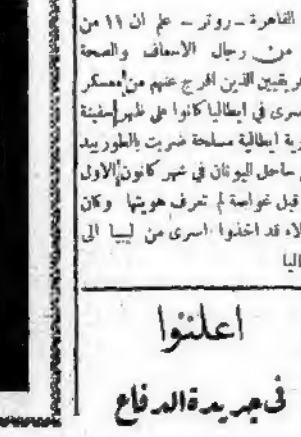 القاهرة - روتر - علم ان ١١ من
من رجال الاسعاف والصحة
الذين افرج عنهم من معسكر
اسرى في ايطاليا كانوا على ظهر سفينة
ايطالية مسلحة ضربت بالطوربيد
ساحل اليونان في شهر كانون الاول
قبل غواصة لم تعرف هويتها وكان
قد اخذوا اسرى من ليبيا الى
اعلنوا
في جريدة الدفاع